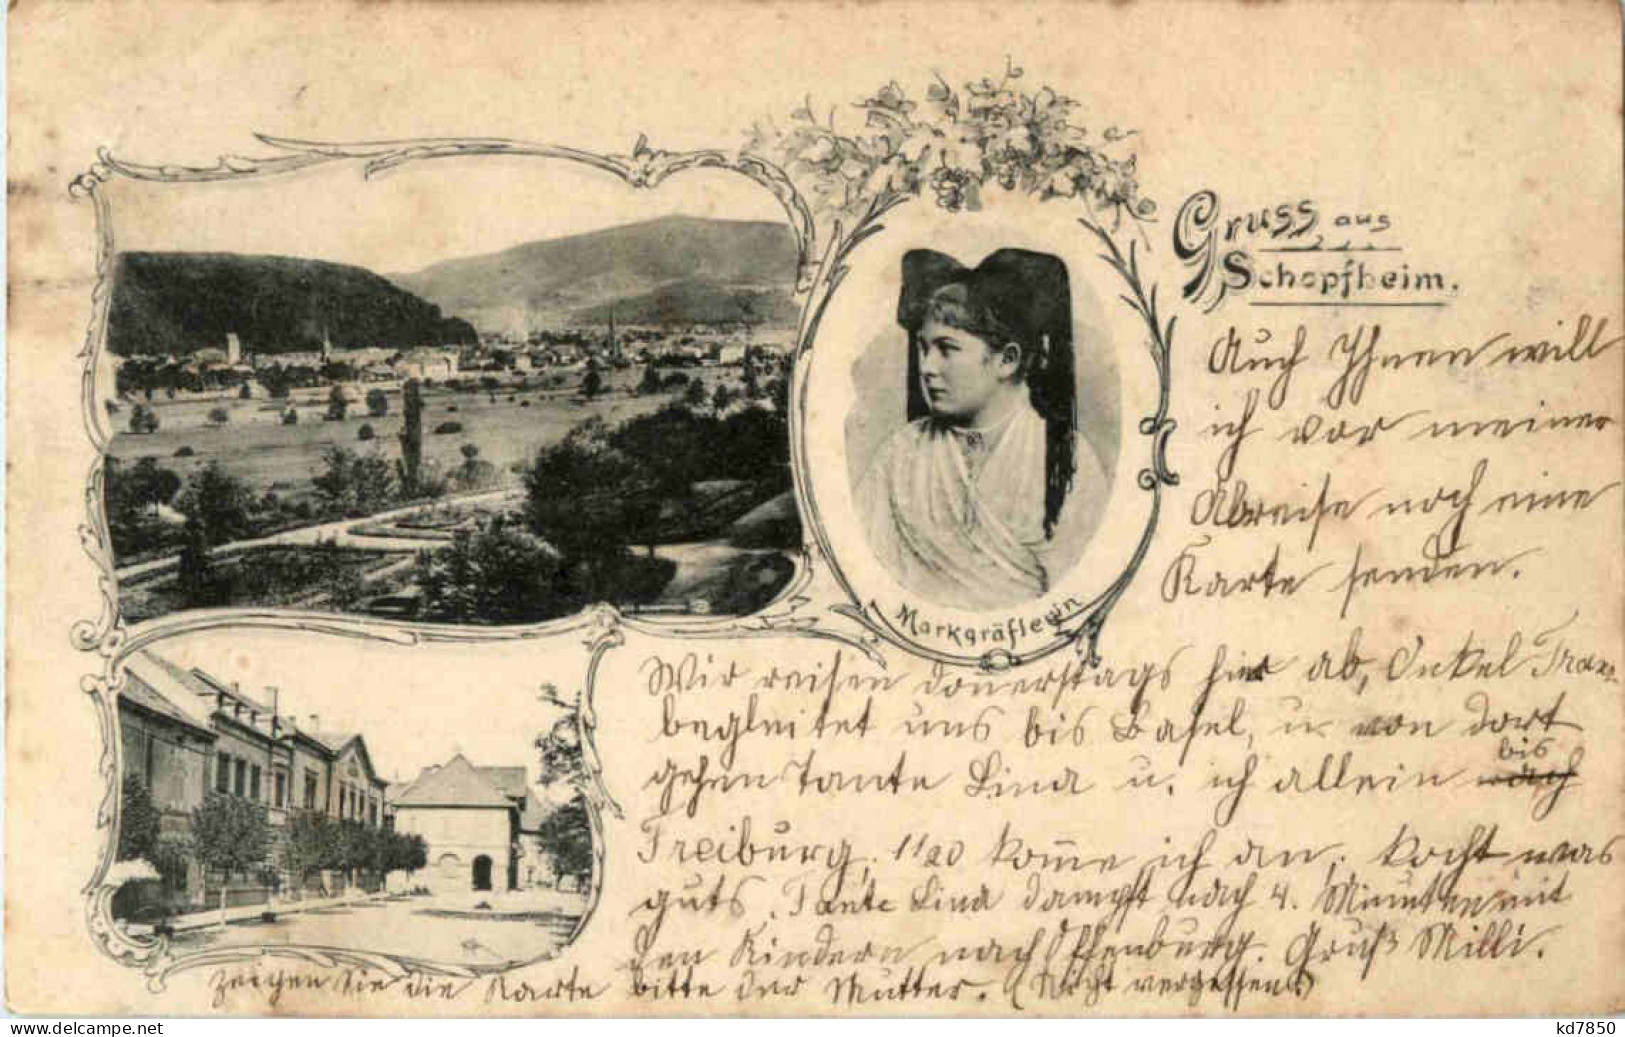 Gruss aus
Schopfheim.
Markgräflerin
Auch Ihnen will
ich vor meiner
Abreise noch eine
Karte senden.
Wir reisen donnerstags hier ab, Onkel
begleitet uns bis Basel, u. von dort
gehen Tante Lina u. ich allein nach bis
Freiburg, 11 20 komme ich an, kocht was
guts. Tante Lina dampft nach 4. Minuten mit
den Kindern nach Offenburg. Gruß Milli.
Zeigen Sie die Karte bitte der Mutter. (Nicht vergessen!)
www.delcampe.net
kd7850